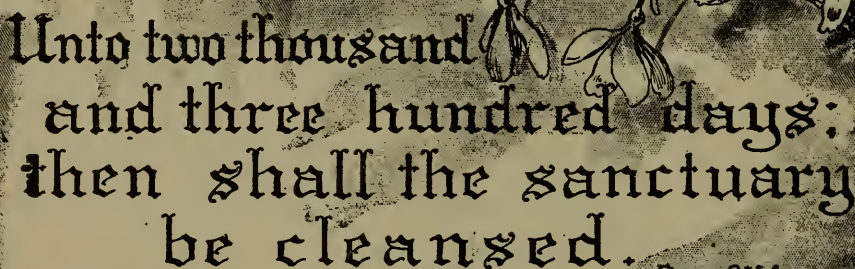 Unto two thousand
and three hundred days;
then shall the sanctuary
be cleansed.